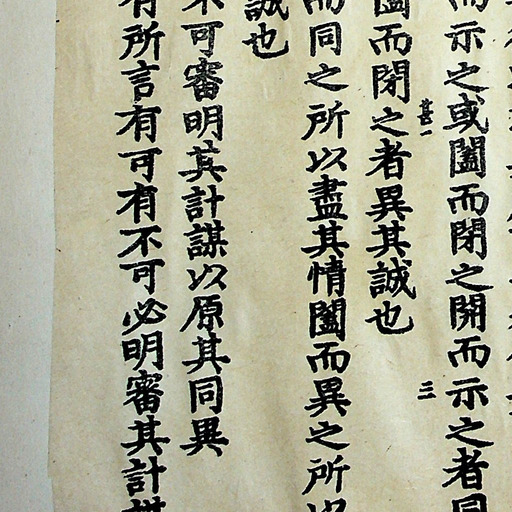 而示之或闔而閉之開而示之者同
甚一
三
闔而閉之者異其誠也
而同之所以盡其情闔而異之所以
誠也
不可審明其計謀以原其同異
有所言有可有不可必明審其計謀